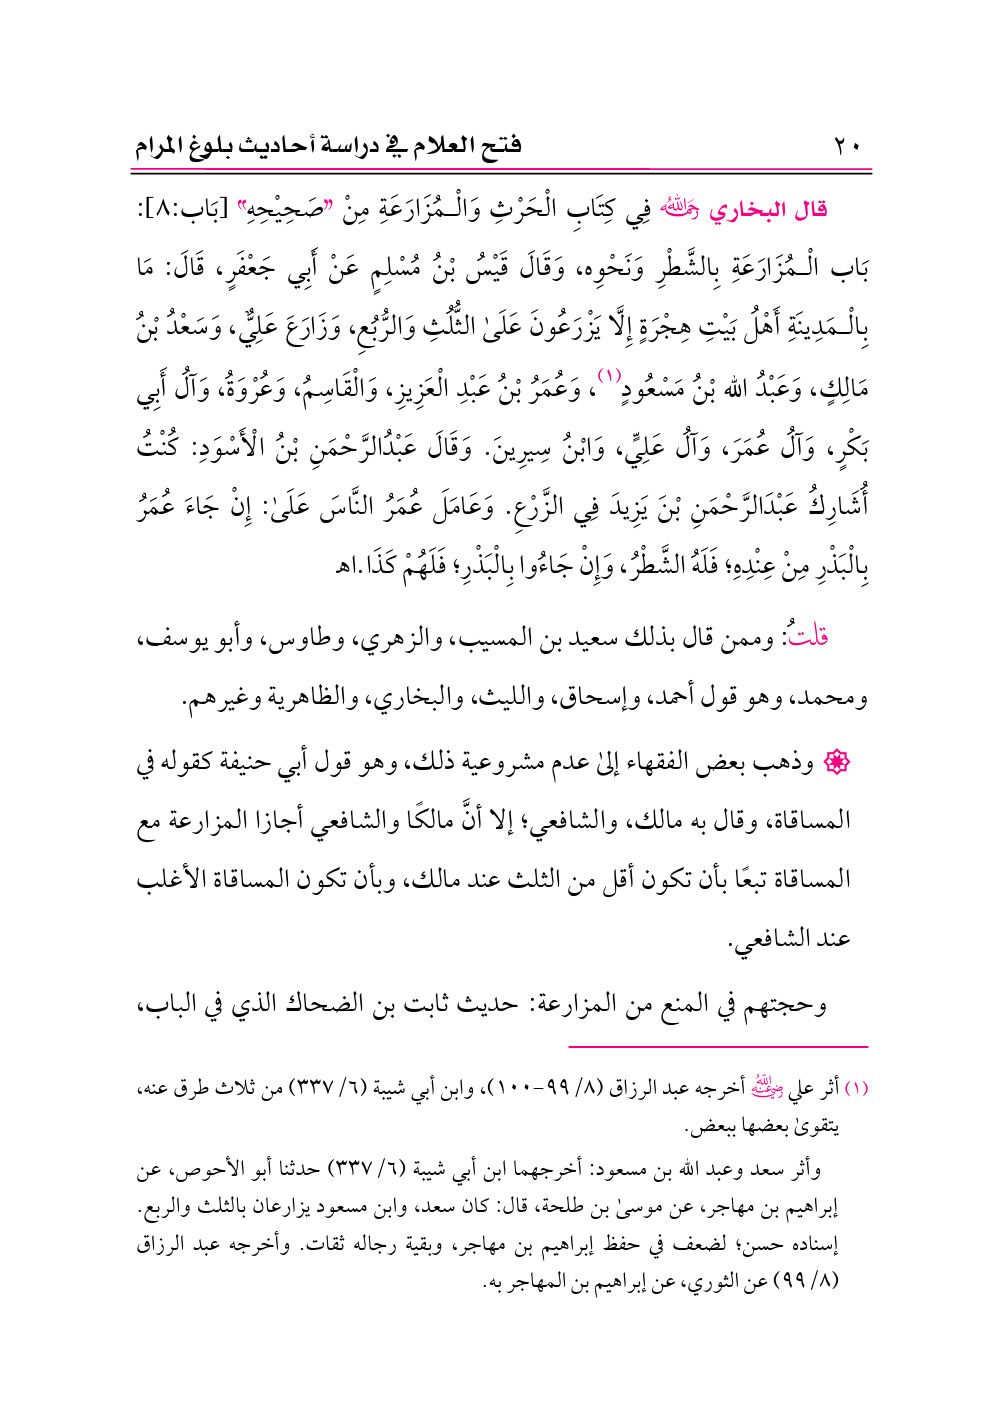 ٢٠ فتح العلام في دراسة أحاديث بلوغ المرام
قال البخاري رَحِمَهُ اللهُ فِي كِتَابِ الْحَرْثِ وَالْـمُزَارَعَةِ مِنْ "صَحِيْحِهِ" [بَاب:٨]:
بَاب الْـمُزَارَعَةِ بِالشَّطْرِ وَنَحْوِه، وَقَالَ قَيْسُ بْنُ مُسْلِمٍ عَنْ أَبِي جَعْفَرٍ، قَالَ: مَا
بِالْـمَدِينَةِ أَهْلُ بَيْتِ هِجْرَةٍ إِلَّا يَزْرَعُونَ عَلَىٰ الثُّلُثِ وَالرُّبُعِ، وَزَارَعَ عَلِيٌّ، وَسَعْدُ بْنُ
مَالِكٍ، وَعَبْدُ الله بْنُ مَسْعُودٍ(١)، وَعُمَرُ بْنُ عَبْدِ الْعَزِيزِ، وَالْقَاسِمُ، وَعُرْوَةُ، وَآلُ أَبِي
بَكْرٍ، وَآلُ عُمَرَ، وَآلُ عَلِيٍّ، وَابْنُ سِيرِينَ. وَقَالَ عَبْدُالرَّحْمَنِ بْنُ الْأَسْوَدِ: كُنْتُ
أُشَارِكُ عَبْدَالرَّحْمَنِ بْنَ يَزِيدَ فِي الزَّرْعِ. وَعَامَلَ عُمَرُ النَّاسَ عَلَىٰ: إِنْ جَاءَ عُمَرُ
بِالْبَذْرِ مِنْ عِنْدِهِ؛ فَلَهُ الشَّطْرُ، وَإِنْ جَاءُوا بِالْبَذْرِ؛ فَلَهُمْ كَذَا.اهـ
قلتُ: وممن قال بذلك سعيد بن المسيب، والزهري، وطاوس، وأبو يوسف،
ومحمد، وهو قول أحمد، وإسحاق، والليث، والبخاري، والظاهرية وغيرهم.
وذهب بعض الفقهاء إلىٰ عدم مشروعية ذلك، وهو قول أبي حنيفة كقوله في
المساقاة، وقال به مالك، والشافعي؛ إلا أنَّ مالكًا والشافعي أجازا المزارعة مع
المساقاة تبعًا بأن تكون أقل من الثلث عند مالك، وبأن تكون المساقاة الأغلب
عند الشافعي.
وحجتهم في المنع من المزارعة: حديث ثابت بن الضحاك الذي في الباب،
(١) أثر علي رَضِيَ اللهُ عَنْهُ أخرجه عبد الرزاق (٨/ ٩٩-١٠٠)، وابن أبي شيبة (٦/ ٣٣٧) من ثلاث طرق عنه،
يتقوىٰ بعضها ببعض.
وأثر سعد وعبد الله بن مسعود: أخرجهما ابن أبي شيبة (٦/ ٣٣٧) حدثنا أبو الأحوص، عن
إبراهيم بن مهاجر، عن موسىٰ بن طلحة، قال: كان سعد، وابن مسعود يزارعان بالثلث والربع.
إسناده حسن؛ لضعف في حفظ إبراهيم بن مهاجر، وبقية رجاله ثقات. وأخرجه عبد الرزاق
(٨/ ٩٩) عن الثوري، عن إبراهيم بن المهاجر به.